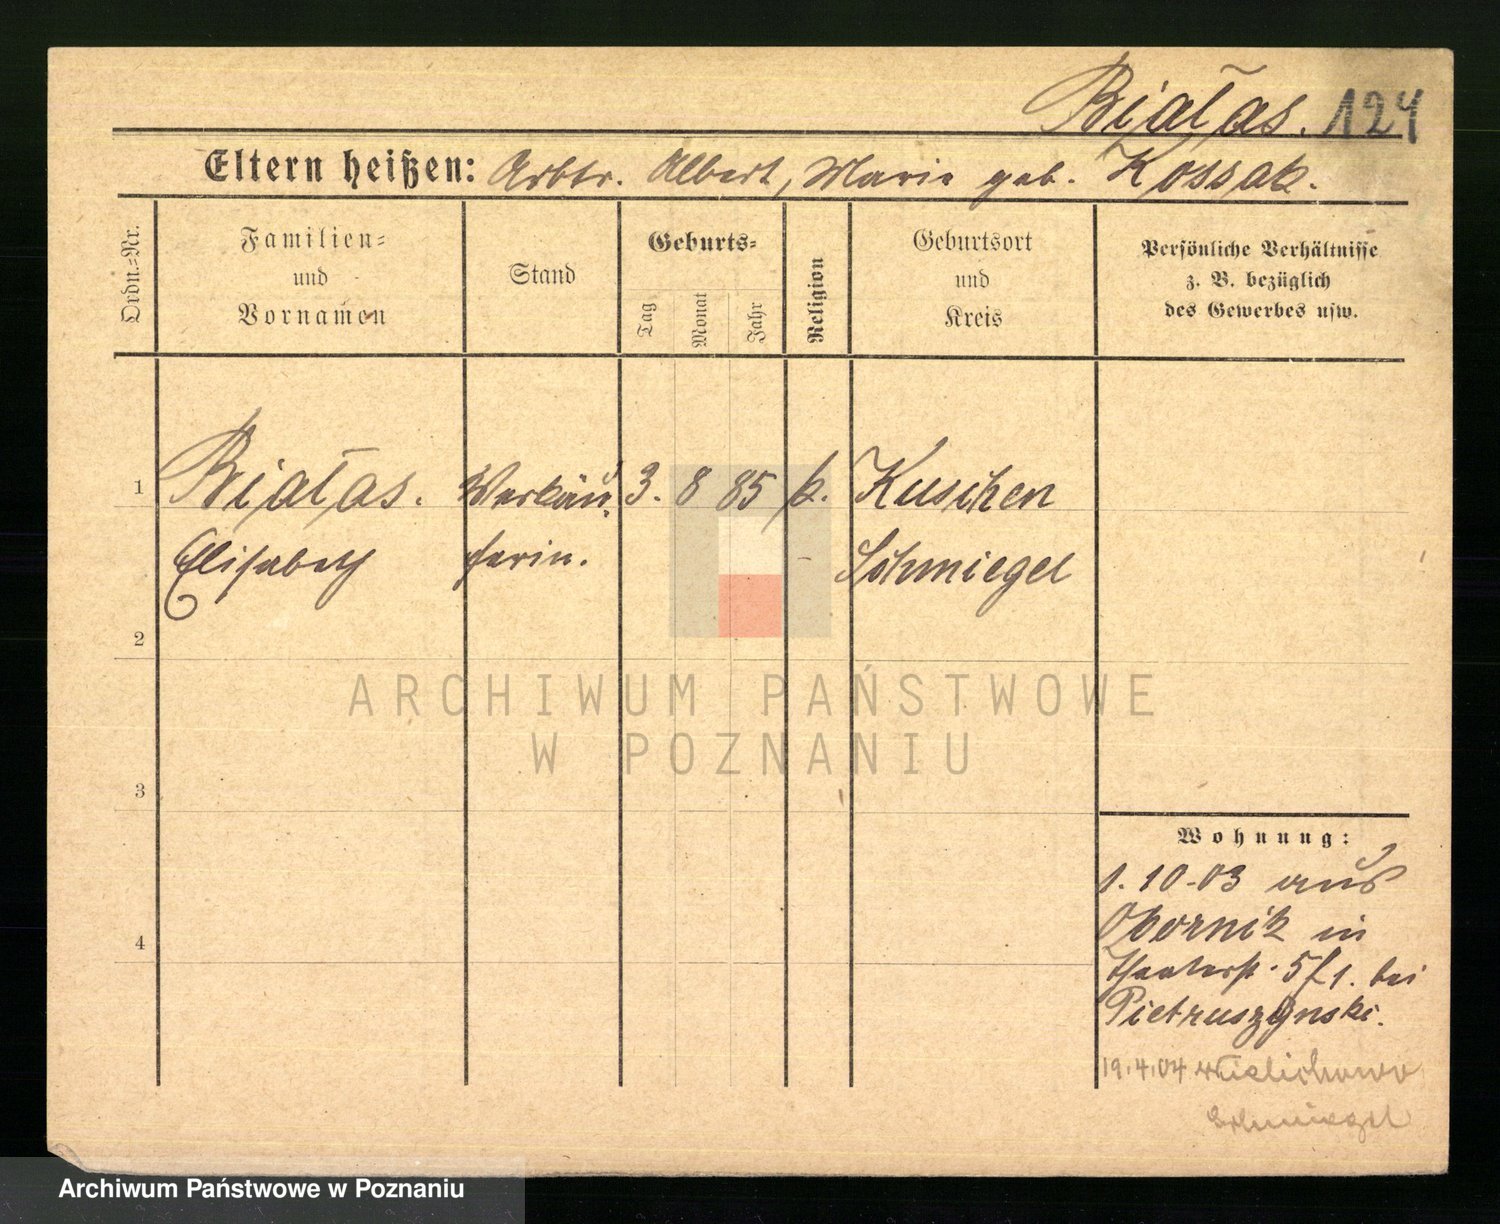 Białas. 124
Eltern heißen: Arbtr. Albert, Marie geb. Kossak.
Ordn.=Nr.
Familien=
und
Vornamen
Stand
Geburts=
Tag
Monat
Jahr
Religion
Geburtsort
und
Kreis
Persönliche Verhältnisse
z. B. bezüglich
des Gewerbes usw.
1 Białas. Verkäu= 3. 8 85 k. Kuschen
Elisabeth ferin. Schmiegel
2
ARCHIWUM PAŃSTWOWE
W POZNANIU
3
Wohnung:
1.10-03 aus
Obornik in
Theaterstr. 5/1. bei
Pietruszynski.
4
19.4.04 Wielichowo
Schmiegel
Archiwum Państwowe w Poznaniu